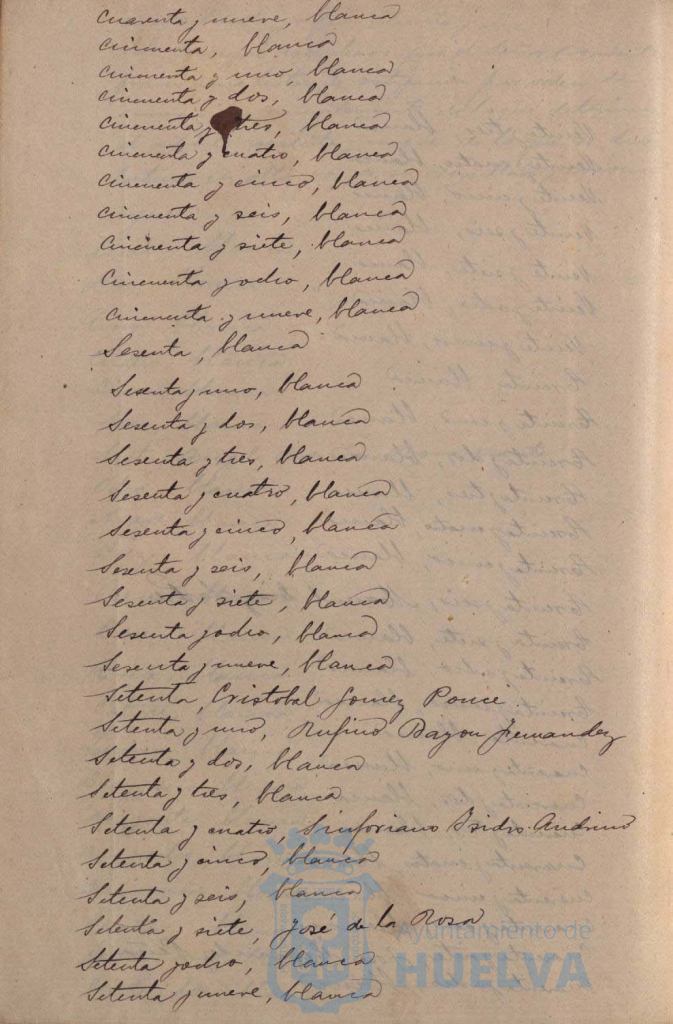 Cuarenta y nueve, blanca
Cincuenta, blanca
Cincuenta y uno, blanca
Cincuenta y dos, blanca
Cincuenta y tres, blanca
Cincuenta y cuatro, blanca
Cincuenta y cinco, blanca
Cincuenta y seis, blanca
Cincuenta y siete, blanca
Cincuenta y ocho, blanca
Cincuenta y nueve, blanca
Sesenta, blanca
Sesenta y uno, blanca
Sesenta y dos, blanca
Sesenta y tres, blanca
Sesenta y cuatro, blanca
Sesenta y cinco, blanca
Sesenta y seis, blanca
Sesenta y siete, blanca
Sesenta y ocho, blanca
Sesenta y nueve, blanca
Setenta, Cristobal Gomez Ponce
Setenta y uno, Rufino Bayon Fernandez
Setenta y dos, blanca
Setenta y tres, blanca
Setenta y cuatro, Sinforiano Isidro
Setenta y cinco, blanca
Setenta y seis, blanca
Setenta y siete, José de la Rosa
Setenta y ocho, blanca
Setenta y nueve, blanca
Ayuntamiento de
HUELVA